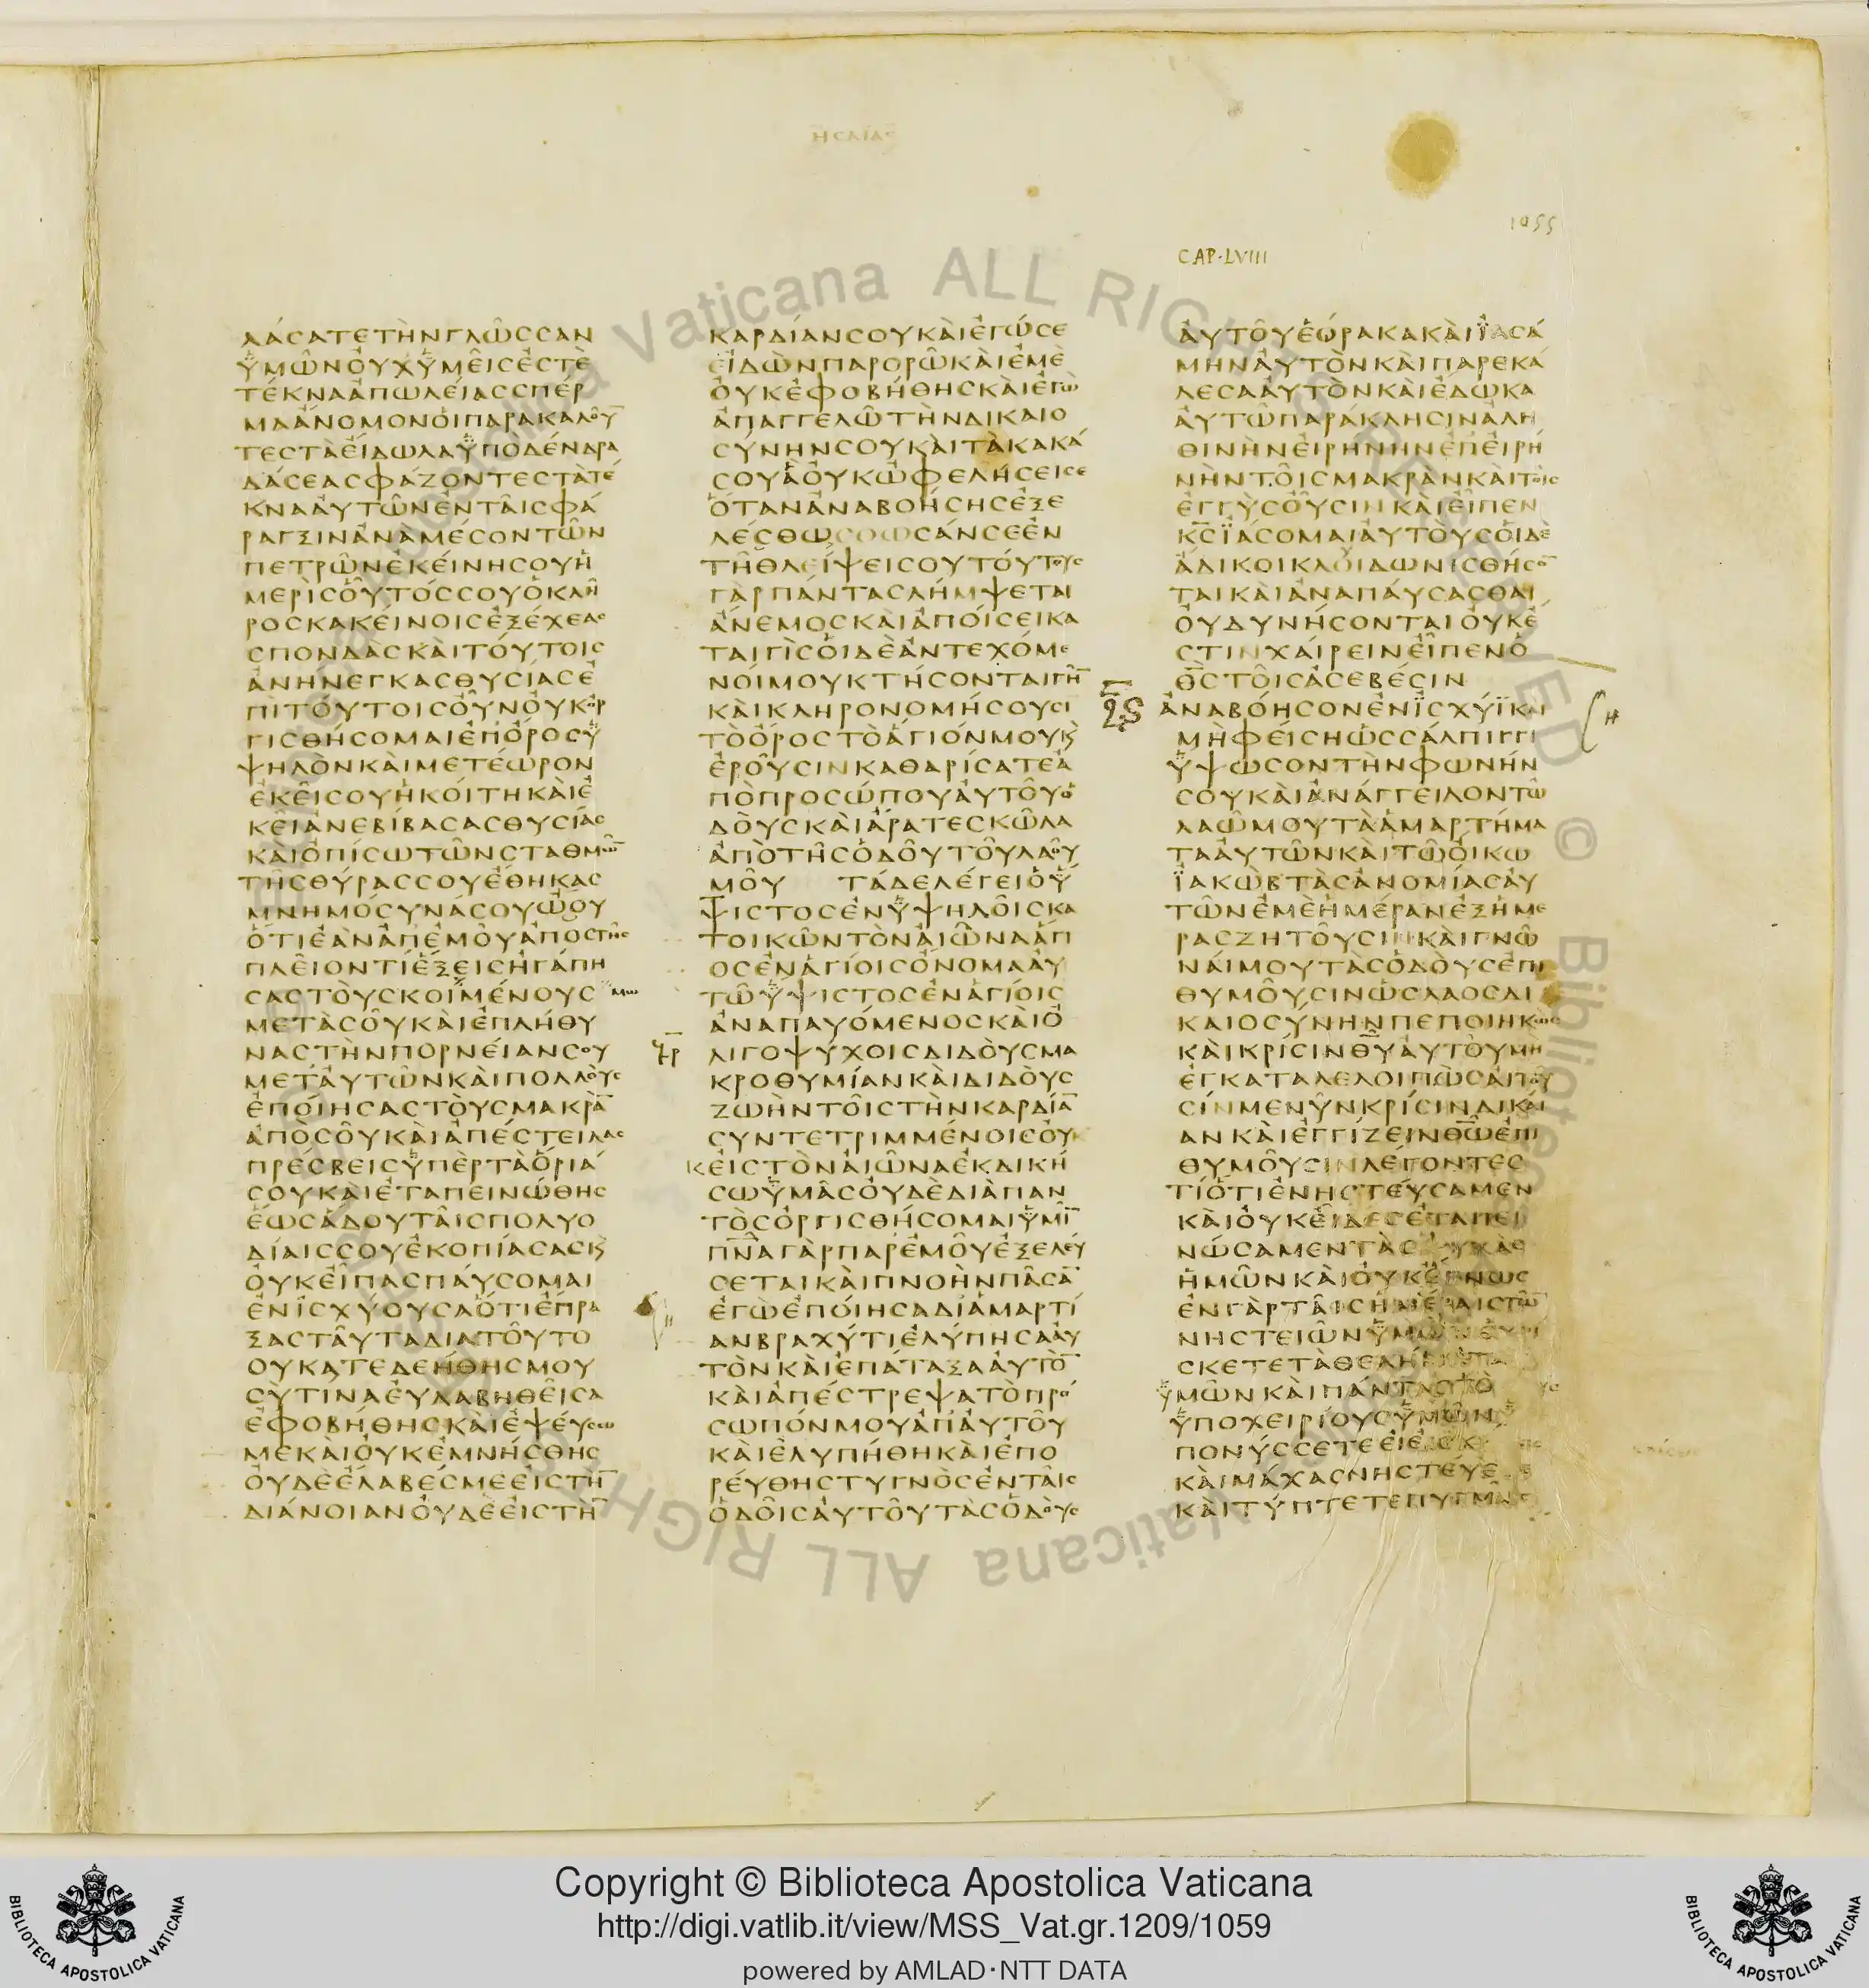 ΗСΑΙΑС
1055
CAP·LVIII
ΛΑСΑΤΕΤΗΝΓΛΩССΑΝ
ΥΜΩΝΟΥΧΥΜΕΙСΕСΤΕ
ΤΕΚΝΑΑΠΩΛΕΙΑССΠΕΡ
ΜΑΑΝΟΜΟΝΟΙΠΑΡΑΚΑΛΟΥ̅
ΤΕСΤΑΕΙΔΩΛΑΥΠΟΔΕΝΔΡΑ
ΔΑСΕΑСΦΑΖΟΝΤΕСΤΑΤΕ
ΚΝΑΑΥΤΩΝΕΝΤΑΙСΦΑ
ΡΑΓΞΙΝΑΝΑΜΕСΟΝΤΩΝ
ΠΕΤΡΩΝΕΚΕΙΝΗСΟΥΗ
ΜΕΡΙСΟΥΤΟССΟΥΟΚΛΗ
ΡΟСΚΑΚΕΙΝΟΙСΕΞΕΧΕΑС
СΠΟΝΔΑСΚΑΙΤΟΥΤΟΙС
ΑΝΗΝΕΓΚΑСΘΥСΙΑСΕ
ΠΙΤΟΥΤΟΙСΟΥΝΟΥΚΟΡ
ΓΙСΘΗСΟΜΑΙΕΠΟΡΟСΥ
ΨΗΛΟΝΚΑΙΜΕΤΕΩΡΟΝ
ΕΚΕΙСΟΥΗΚΟΙΤΗΚΑΙΕ
ΚΕΙΑΝΕΒΙΒΑСΑСΘΥСΙΑС
ΚΑΙΟΠΙСΩΤΩΝСΤΑΘΜΩ̅
ΤΗСΘΥΡΑССΟΥΕΘΗΚΑС
ΜΝΗΜΟСΥΝΑСΟΥΩΟΥ
ΟΤΙΕΑΝΑΠΕΜΟΥΑΠΟСΤΗС
ΠΛΕΙΟΝΤΙΕΞΕΙСΗΓΑΠΗ
СΑСΤΟΥСΚΟΙΜΕΝΟΥС
ΜΕΤΑСΟΥΚΑΙΕΠΛΗΘΥ
ΝΑСΤΗΝΠΟΡΝΕΙΑΝСΟΥ
ΜΕΤΑΥΤΩΝΚΑΙΠΟΛΛΟΥС
ΕΠΟΙΗСΑСΤΟΥСΜΑΚΡΑ̅
ΑΠΟСΟΥΚΑΙΑΠΕСΤΕΙΛΑС
ΠΡΕСΒΕΙСΥΠΕΡΤΑΟΡΙΑ
СΟΥΚΑΙΕΤΑΠΕΙΝΩΘΗС
ΕΩСΑΔΟΥΤΑΙСΠΟΛΥΟ
ΔΙΑΙССΟΥΕΚΟΠΙΑСΑСΚ
ΟΥΚΕΙΠΑСΠΑΥСΟΜΑΙ
ΕΝΙСΧΥΟΥСΑΟΤΙΕΠΡΑ
ΞΑСΤΑΥΤΑΔΙΑΤΟΥΤΟ
ΟΥΚΑΤΕΔΕΗΘΗСΜΟΥ
СΥΤΙΝΑΕΥΛΑΒΗΘΕΙСΑ
ΕΦΟΒΗΘΗСΚΑΙΕΨΕΥСΩ
ΜΕΚΑΙΟΥΚΕΜΝΗСΘΗС
ΟΥΔΕΕΛΑΒΕСΜΕΕΙСΤΗ̅
ΔΙΑΝΟΙΑΝΟΥΔΕΕΙСΤΗ̅
ΚΑΡΔΙΑΝСΟΥΚΑΙΕΓΩСΕ
ΕΙΔΩΝΠΑΡΟΡΩΚΑΙΕΜΕ
ΟΥΚΕΦΟΒΗΘΗСΚΑΙΕΓΩ
ΑΠΑΓΓΕΛΩΤΗΝΔΙΚΑΙΟ
СΥΝΗΝСΟΥΚΑΙΤΑΚΑΚΑ
СΟΥΑΟΥΚΩΦΕΛΗСΕΙСΕ
ΟΤΑΝΑΝΑΒΟΗСΗСΕΞΕ
ΛΕСΘΩСΟΩСΑΝСΕΕΝ
ΤΗΘΛΕΙΨΕΙСΟΥΤΟΥΤΟΥС
ΓΑΡΠΑΝΤΑСΛΗΜΨΕΤΑΙ
ΑΝΕΜΟСΚΑΙΑΠΟΙСΕΙΚΑ
ΤΑΙΓΙСΟΙΔΕΑΝΤΕΧΟΜΕ
ΝΟΙΜΟΥΚΤΗСΟΝΤΑΙΓΗ̅
ΚΑΙΚΛΗΡΟΝΟΜΗСΟΥСΙ
ΤΟΟΡΟСΤΟΑΓΙΟΝΜΟΥΚ
ΕΡΟΥСΙΝΚΑΘΑΡΙСΑΤΕΑ
ΠΟΠΡΟСΩΠΟΥΑΥΤΟΥΟ
ΔΟΥСΚΑΙΑΡΑΤΕСΚΩΛΑ
ΑΠΟΤΗСΟΔΟΥΤΟΥΛΑΟΥ
ΜΟΥ ΤΑΔΕΛΕΓΕΙΟΥ
ΨΙСΤΟСΕΝΥΨΗΛΟΙСΚΑ
ΤΟΙΚΩΝΤΟΝΑΙΩΝΑΑΓΙ
ΟСΕΝΑΓΙΟΙСΟΝΟΜΑΑΥ
ΤΩΥΨΙСΤΟСΕΝΑΓΙΟΙС
ΑΝΑΠΑΥΟΜΕΝΟСΚΑΙΟ
ΛΙΓΟΨΥΧΟΙСΔΙΔΟΥСΜΑ
ΚΡΟΘΥΜΙΑΝΚΑΙΔΙΔΟΥС
ΖΩΗΝΤΟΙСΤΗΝΚΑΡΔΙΑ̅
СΥΝΤΕΤΡΙΜΜΕΝΟΙСΟΥ
ΚΕΙСΤΟΝΑΙΩΝΑΕΚΔΙΚΗ
СΩΥΜΑСΟΥΔΕΔΙΑΠΑΝ
ΤΟСΟΡΓΙСΘΗСΟΜΑΙΥΜΙ̅
ΠΝ̅ΑΓΑΡΠΑΡΕΜΟΥΕΞΕΛΕΥ
СΕΤΑΙΚΑΙΠΝΟΗΝΠΑСΑ̅
ΕΓΩΕΠΟΙΗСΑΔΙΑΜΑΡΤΙ
ΑΝΒΡΑΧΥΤΙΕΛΥΠΗСΑΑΥ
ΤΟΝΚΑΙΕΠΑΤΑΞΑΑΥΤΟ̅
ΚΑΙΑΠΕСΤΡΕΨΑΤΟΠΡΟ
СΩΠΟΝΜΟΥΑΠΑΥΤΟΥ
ΚΑΙΕΛΥΠΗΘΗΚΑΙΕΠΟ
ΡΕΥΘΗСΤΥΓΝΟСΕΝΤΑΙС
ΟΔΟΙСΑΥΤΟΥΤΑСΟΔΟΥС
ΑΥΤΟΥΕΩΡΑΚΑΚΑΙΙΑСΑ
ΜΗΝΑΥΤΟΝΚΑΙΠΑΡΕΚΑ
ΛΕСΑΑΥΤΟΝΚΑΙΕΔΩΚΑ
ΑΥΤΩΠΑΡΑΚΛΗСΙΝΑΛΗ
ΘΙΝΗΝΕΙΡΗΝΗΝΕΠΕΙΡΗ
ΝΗΝΤΟΙСΜΑΚΡΑΝΚΑΙΤΟΙС
ΕΓΓΥСΟΥСΙΝΚΑΙΕΙΠΕΝ
Κ̅С̅ΙΑСΟΜΑΙΑΥΤΟΥСΟΙΔΕ
ΑΔΙΚΟΙΚΛΟΙΔΩΝΙСΘΗСΟ̅
ΤΑΙΚΑΙΑΝΑΠΑΥСΑСΘΑΙ
ΟΥΔΥΝΗСΟΝΤΑΙΟΥΚΕ
СΤΙΝΧΑΙΡΕΙΝΕΙΠΕΝΟ
Θ̅С̅ΤΟΙСΑСΕΒΕСΙΝ
ΑΝΑΒΟΗСΟΝΕΝΙСΧΥΙΚΑΙ
ΜΗΦΕΙСΗΩССΑΛΠΙΓΓΙ
ΥΨΩСΟΝΤΗΝΦΩΝΗΝ
СΟΥΚΑΙΑΝΑΓΓΕΙΛΟΝΤΩ
ΛΑΩΜΟΥΤΑΑΜΑΡΤΗΜΑ
ΤΑΑΥΤΩΝΚΑΙΤΩΟΙΚΩ
ΙΑΚΩΒΤΑСΑΝΟΜΙΑСΑΥ
ΤΩΝΕΜΕΗΜΕΡΑΝΕΞΗΜΕ
ΡΑСΖΗΤΟΥСΙΝΚΑΙΓΝΩ
ΝΑΙΜΟΥΤΑСΟΔΟΥСΕΠΙ
ΘΥΜΟΥСΙΝΩСΛΑΟСΔΙ
ΚΑΙΟСΥΝΗΝΠΕΠΟΙΗΚΩС
ΚΑΙΚΡΙСΙΝΘ̅Υ̅ΑΥΤΟΥΜΗ
ΕΓΚΑΤΑΛΕΛΟΙΠΩСΑΙΤΟΥ
СΙΝΜΕΝΥΝΚΡΙСΙΝΔΙΚΑΙ
ΑΝΚΑΙΕΓΓΙΖΕΙΝΘ̅Ω̅ΕΠΙ
ΘΥΜΟΥСΙΝΛΕΓΟΝΤΕС
ΤΙΟΤΙΕΝΗСΤΕΥСΑΜΕΝ
ΚΑΙΟΥΚΕΙΔΕСΕΤΑΠΕΙ
ΝΩСΑΜΕΝΤΑСΨΥΧΑС
ΗΜΩΝΚΑΙΟΥΚΕΓΝΩС
ΕΝΓΑΡΤΑΙСΗΜΕΡΑΙСΤΩ̅
ΝΗСΤΕΙΩΝΥΜΩΝΕΥΡΙ
СΚΕΤΕΤΑΘΕΛΗΜΑΤΑ
ΥΜΩΝΚΑΙΠΑΝΤΑСΤΟ
ΥΠΟΧΕΙΡΙΟΥСΥΜΩΝ
ΠΟΝΥССΕΤΕΕΙΕΙСΚ
ΚΑΙΜΑΧΑСΝΗСΤΕΥΕ
ΚΑΙΤΥΠΤΕΤΕΠΥΓΜΑΙС
Copyright © Biblioteca Apostolica Vaticana
http://digi.vatlib.it/view/MSS_Vat.gr.1209/1059
powered by AMLAD·NTT DATA
BIBLIOTECA APOSTOLICA VATICANA
BIBLIOTECA APOSTOLICA VATICANA